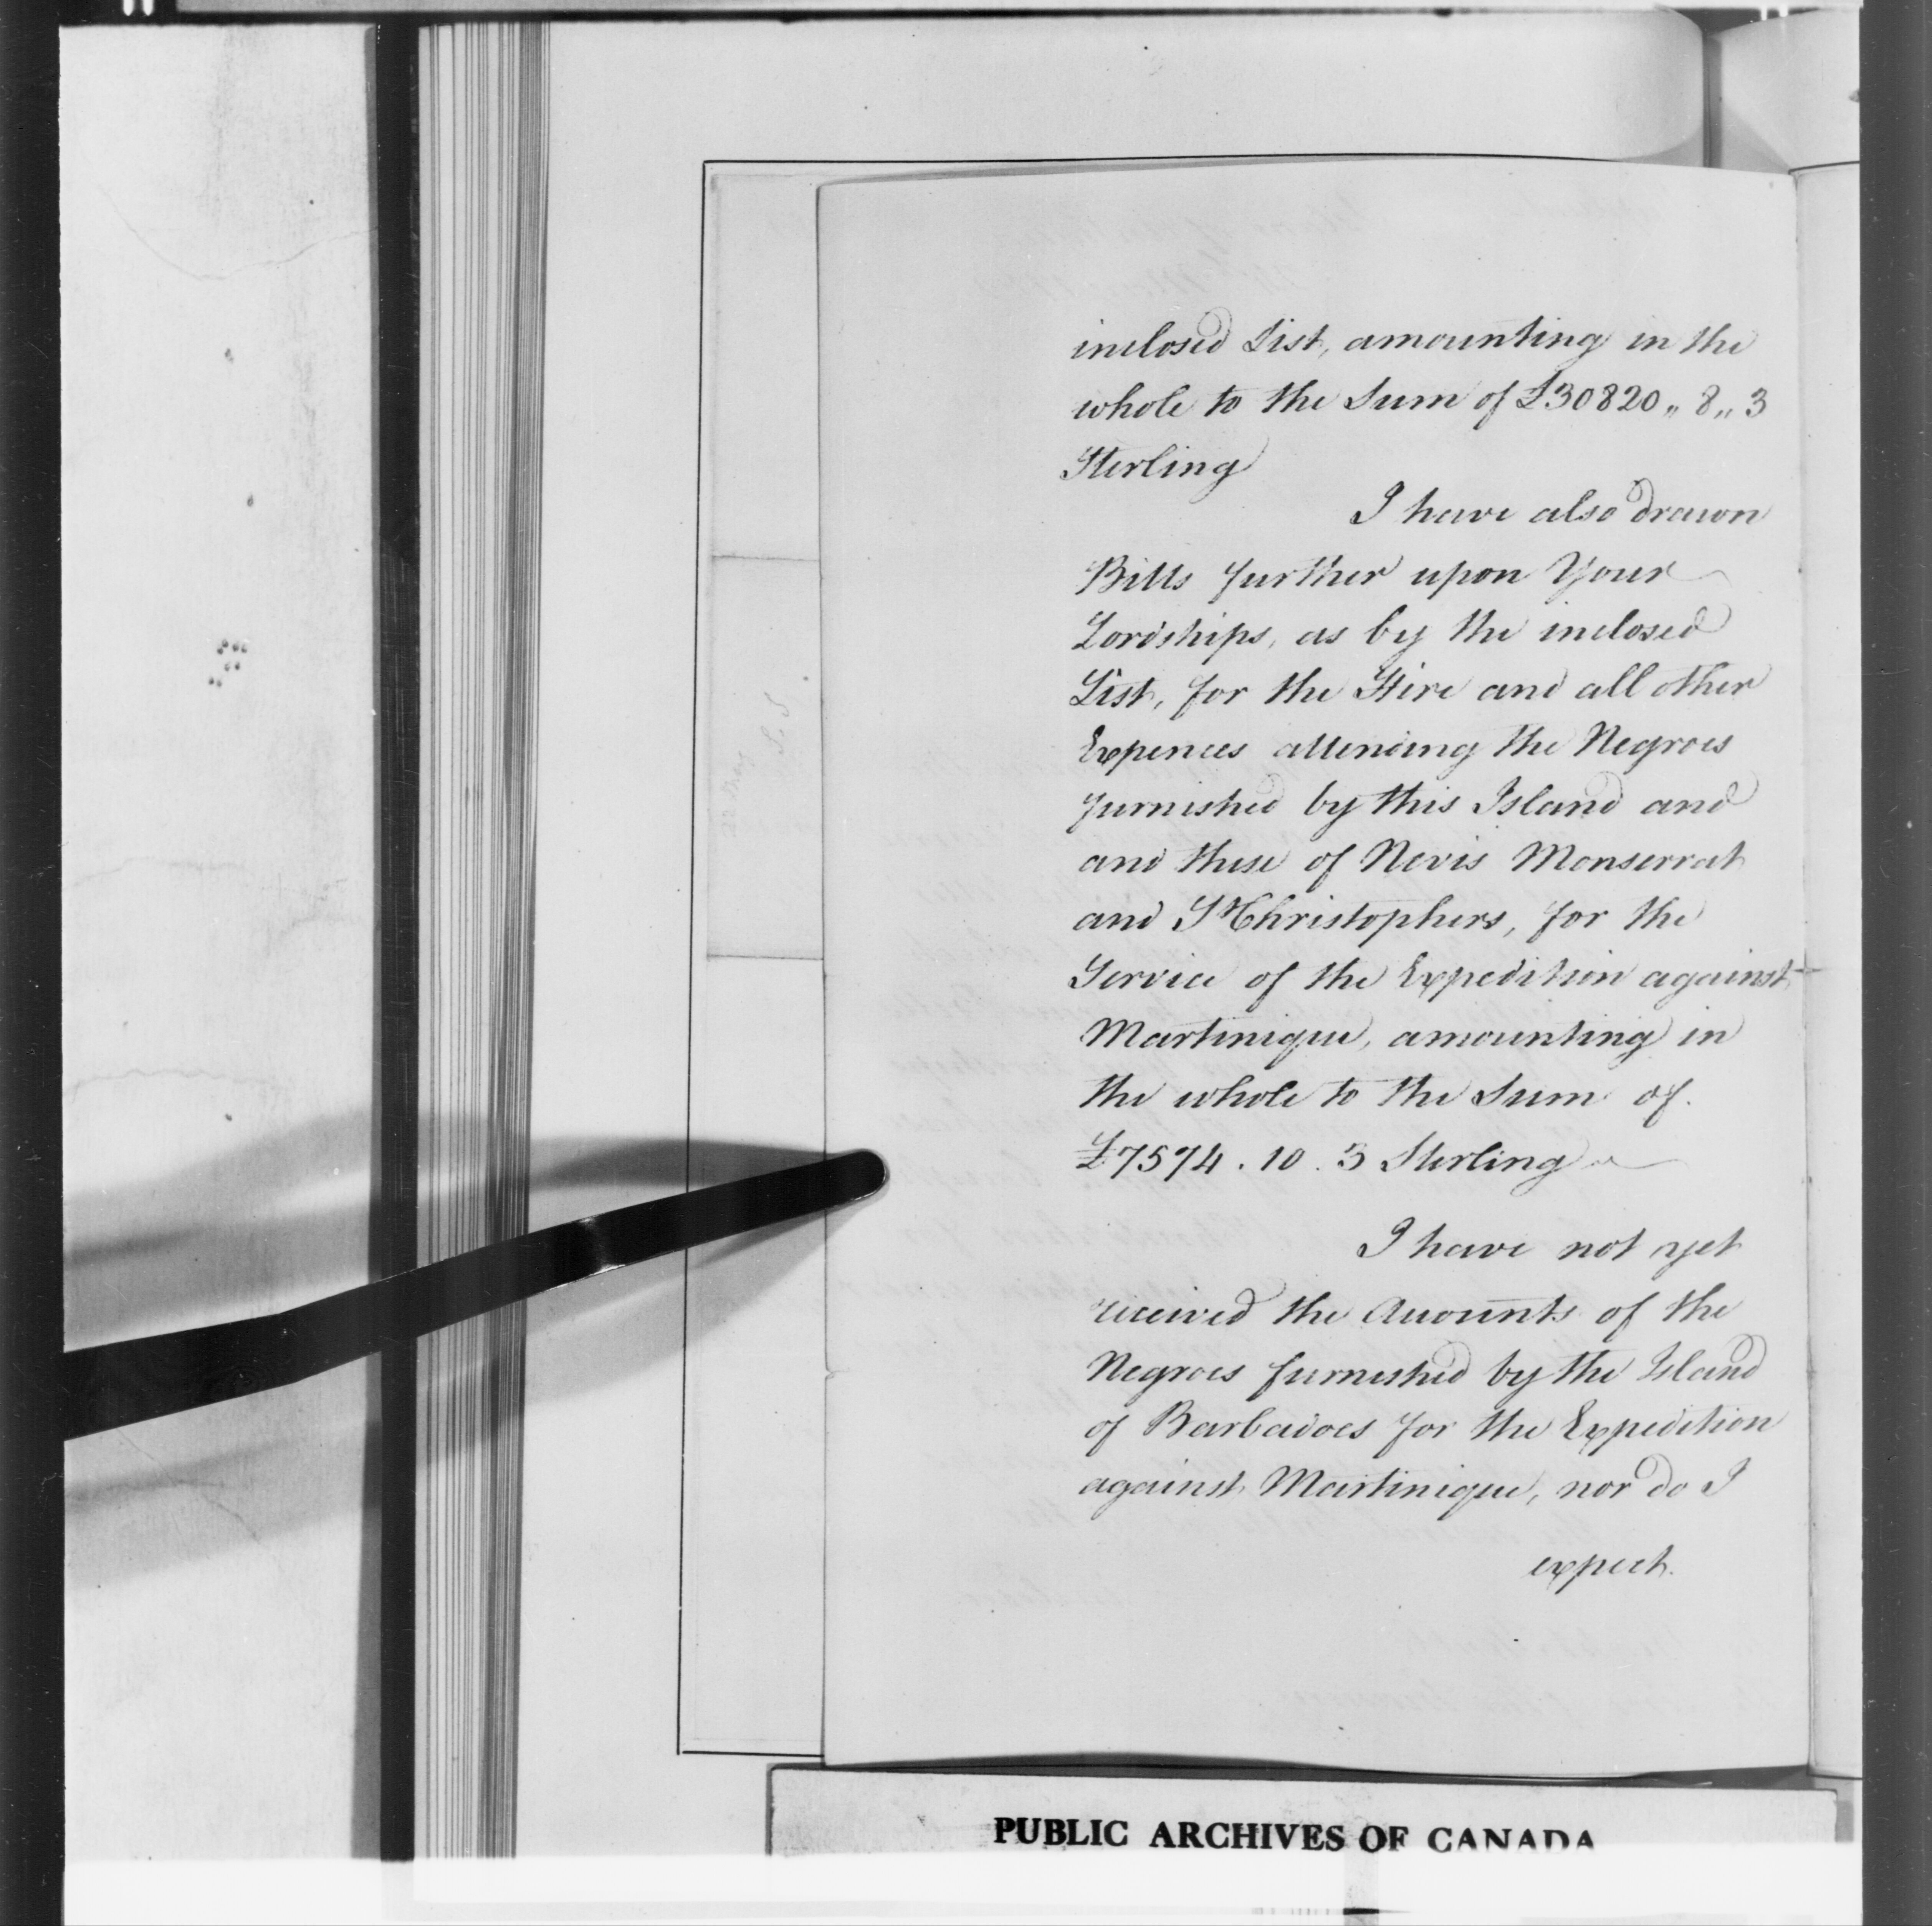 inclosed List, amounting in the
whole to the Sum of £30820 ,, 8 ,, 3
Sterling
I have also drawn
Bills further upon Your
Lordships, as by the inclosed
List, for the Hire and all other
Expences attending the Negroes
furnished by this Island and
and those of Nevis Monserrat
and St Christophers, for the
Service of the Expedition against
Martinique, amounting in
the whole to the Sum of
£7574 . 10 . 3 Sterling
I have not yet
received the Accounts of the
Negroes furnished by the Island
of Barbadoes for the Expedition
against Martinique, nor do I
expect
PUBLIC ARCHIVES OF CANADA